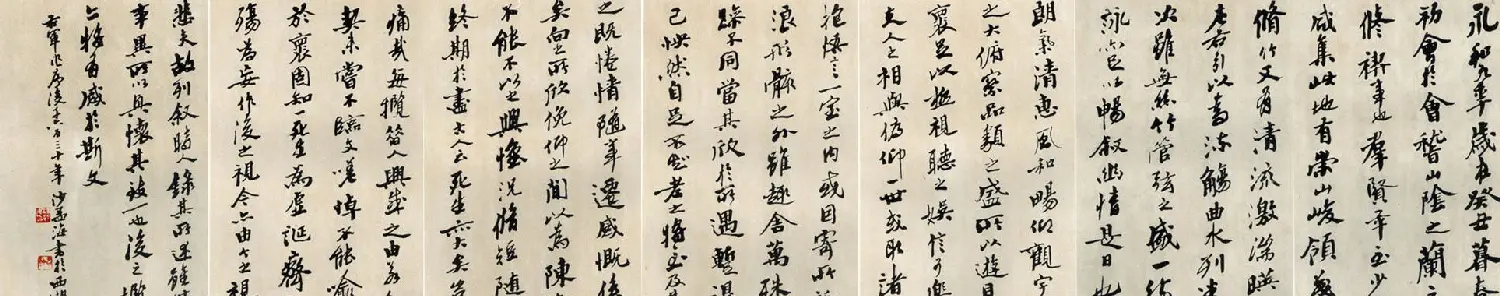 永和九年歲在癸丑暮春
初會於會稽山陰之蘭
修禊事也羣賢畢至少
咸集此地有崇山峻領茂
脩竹又有清流激湍暎
左右引以為流觴曲水列
次雖無絲竹管弦之盛一觴
詠亦足以暢敘幽情是日也
朗氣清惠風和暢仰觀宇
之大俯察品類之盛所以遊目
褱足以極視聽之娛信可樂
夫人之相與俯仰一世或取諸
抱悟言一室之內或因寄所
浪形骸之外雖趣舍萬殊
躁不同當其欣於所遇蹔得
己怏然自足不知老之將至及
之既惓情隨事遷感慨係
矣向之所欣俛仰之間以為陳
不能不以之興懷況脩短隨
終期於盡古人云死生亦大矣豈
痛哉每攬昔人興感之由若
契未嘗不臨文嗟悼不能喻
於褱固知一死生為虛誕齊
殤為妄作後之視今亦由今之視
悲夫故列敘時人錄其所述雖世
事異所以興懷其致一也後之攬
亦將有感於斯文
右軍作序後千六百三十年沙孟海書於西